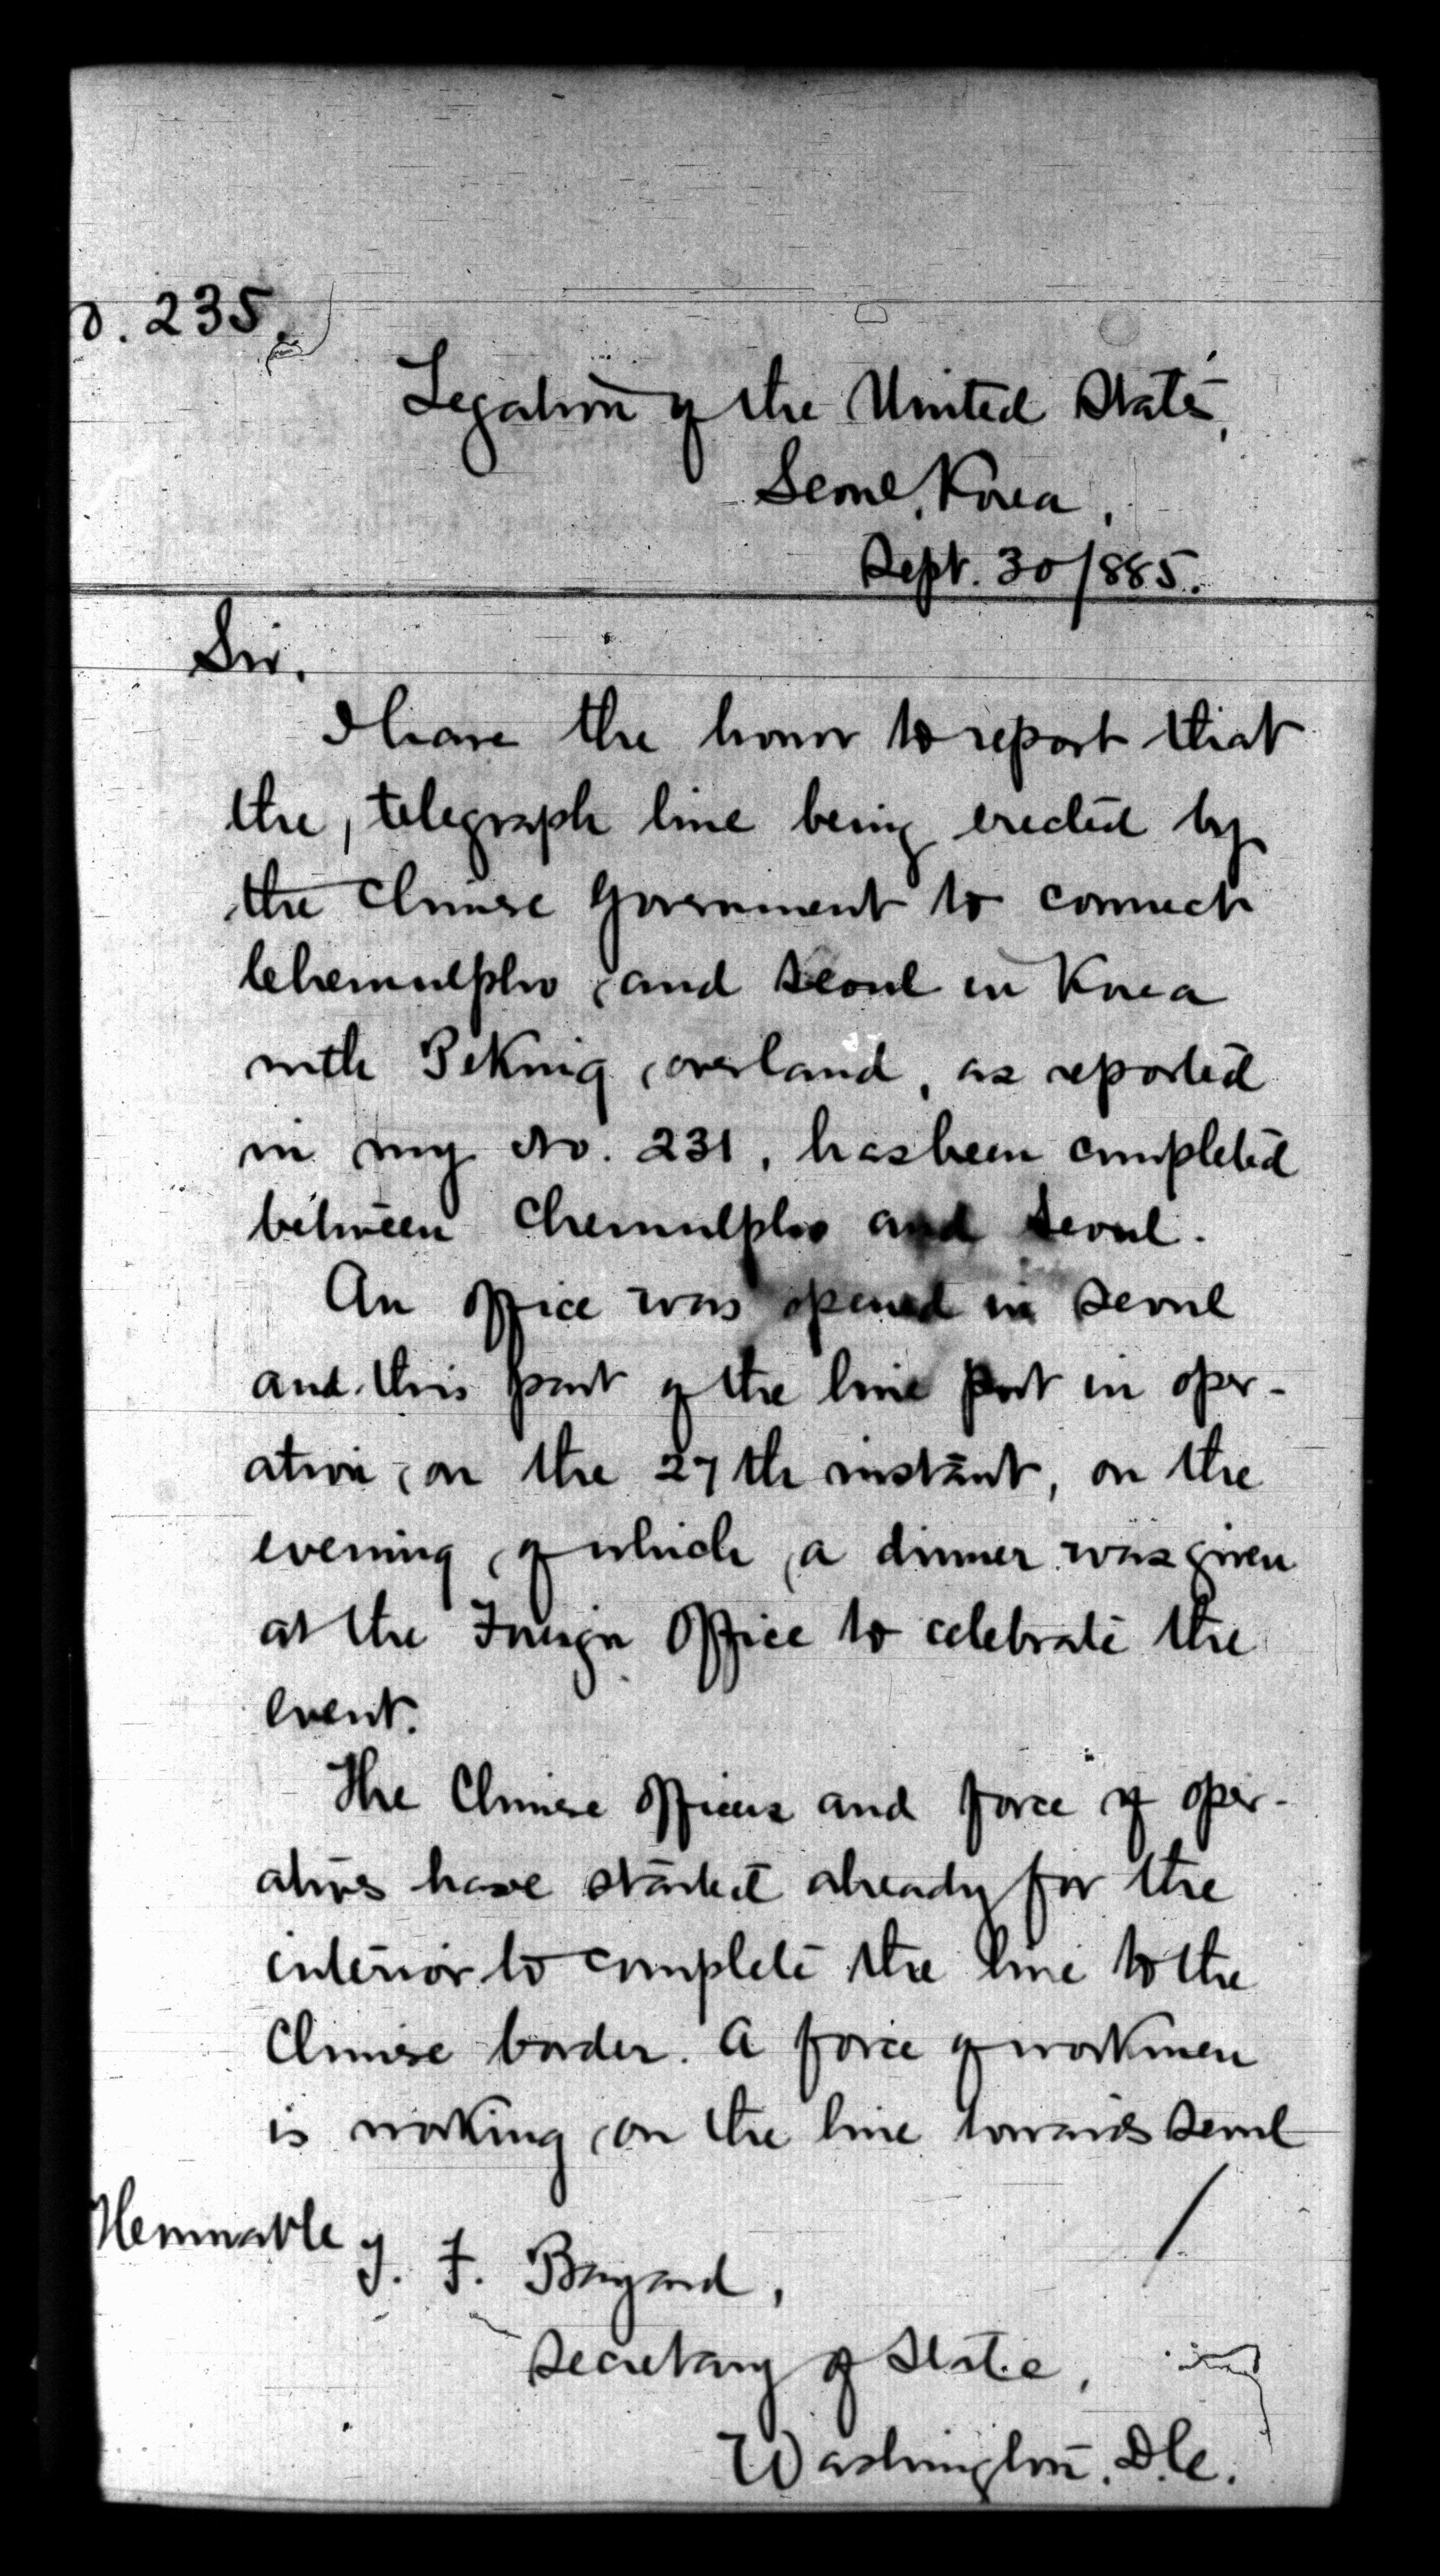 o. 235.
Legation of the United States,
Seoul, Korea,
Sept. 30/1885.
Sir.
I have the honor to report that
the, telegraph line being erected by
the Chinese Government to connect
Chemulpho, and Seoul in Korea
with Peking, overland, as reported
in my No. 231, has been completed
between Chemulpho and Seoul.
An office was opened in Seoul
and this part of the line put in oper-
ation, on the 27th instant, on the
evening, of which, a dinner was given
at the Foreign Office to celebrate the
event.
The Chinese officers and force of oper-
atives have started already for the
interior to complete the line to the
Chinese border. A force of workmen
is working, on the line towards Seoul
Honorable
T. F. Bayard,
Secretary of State,
Washington, D.C.